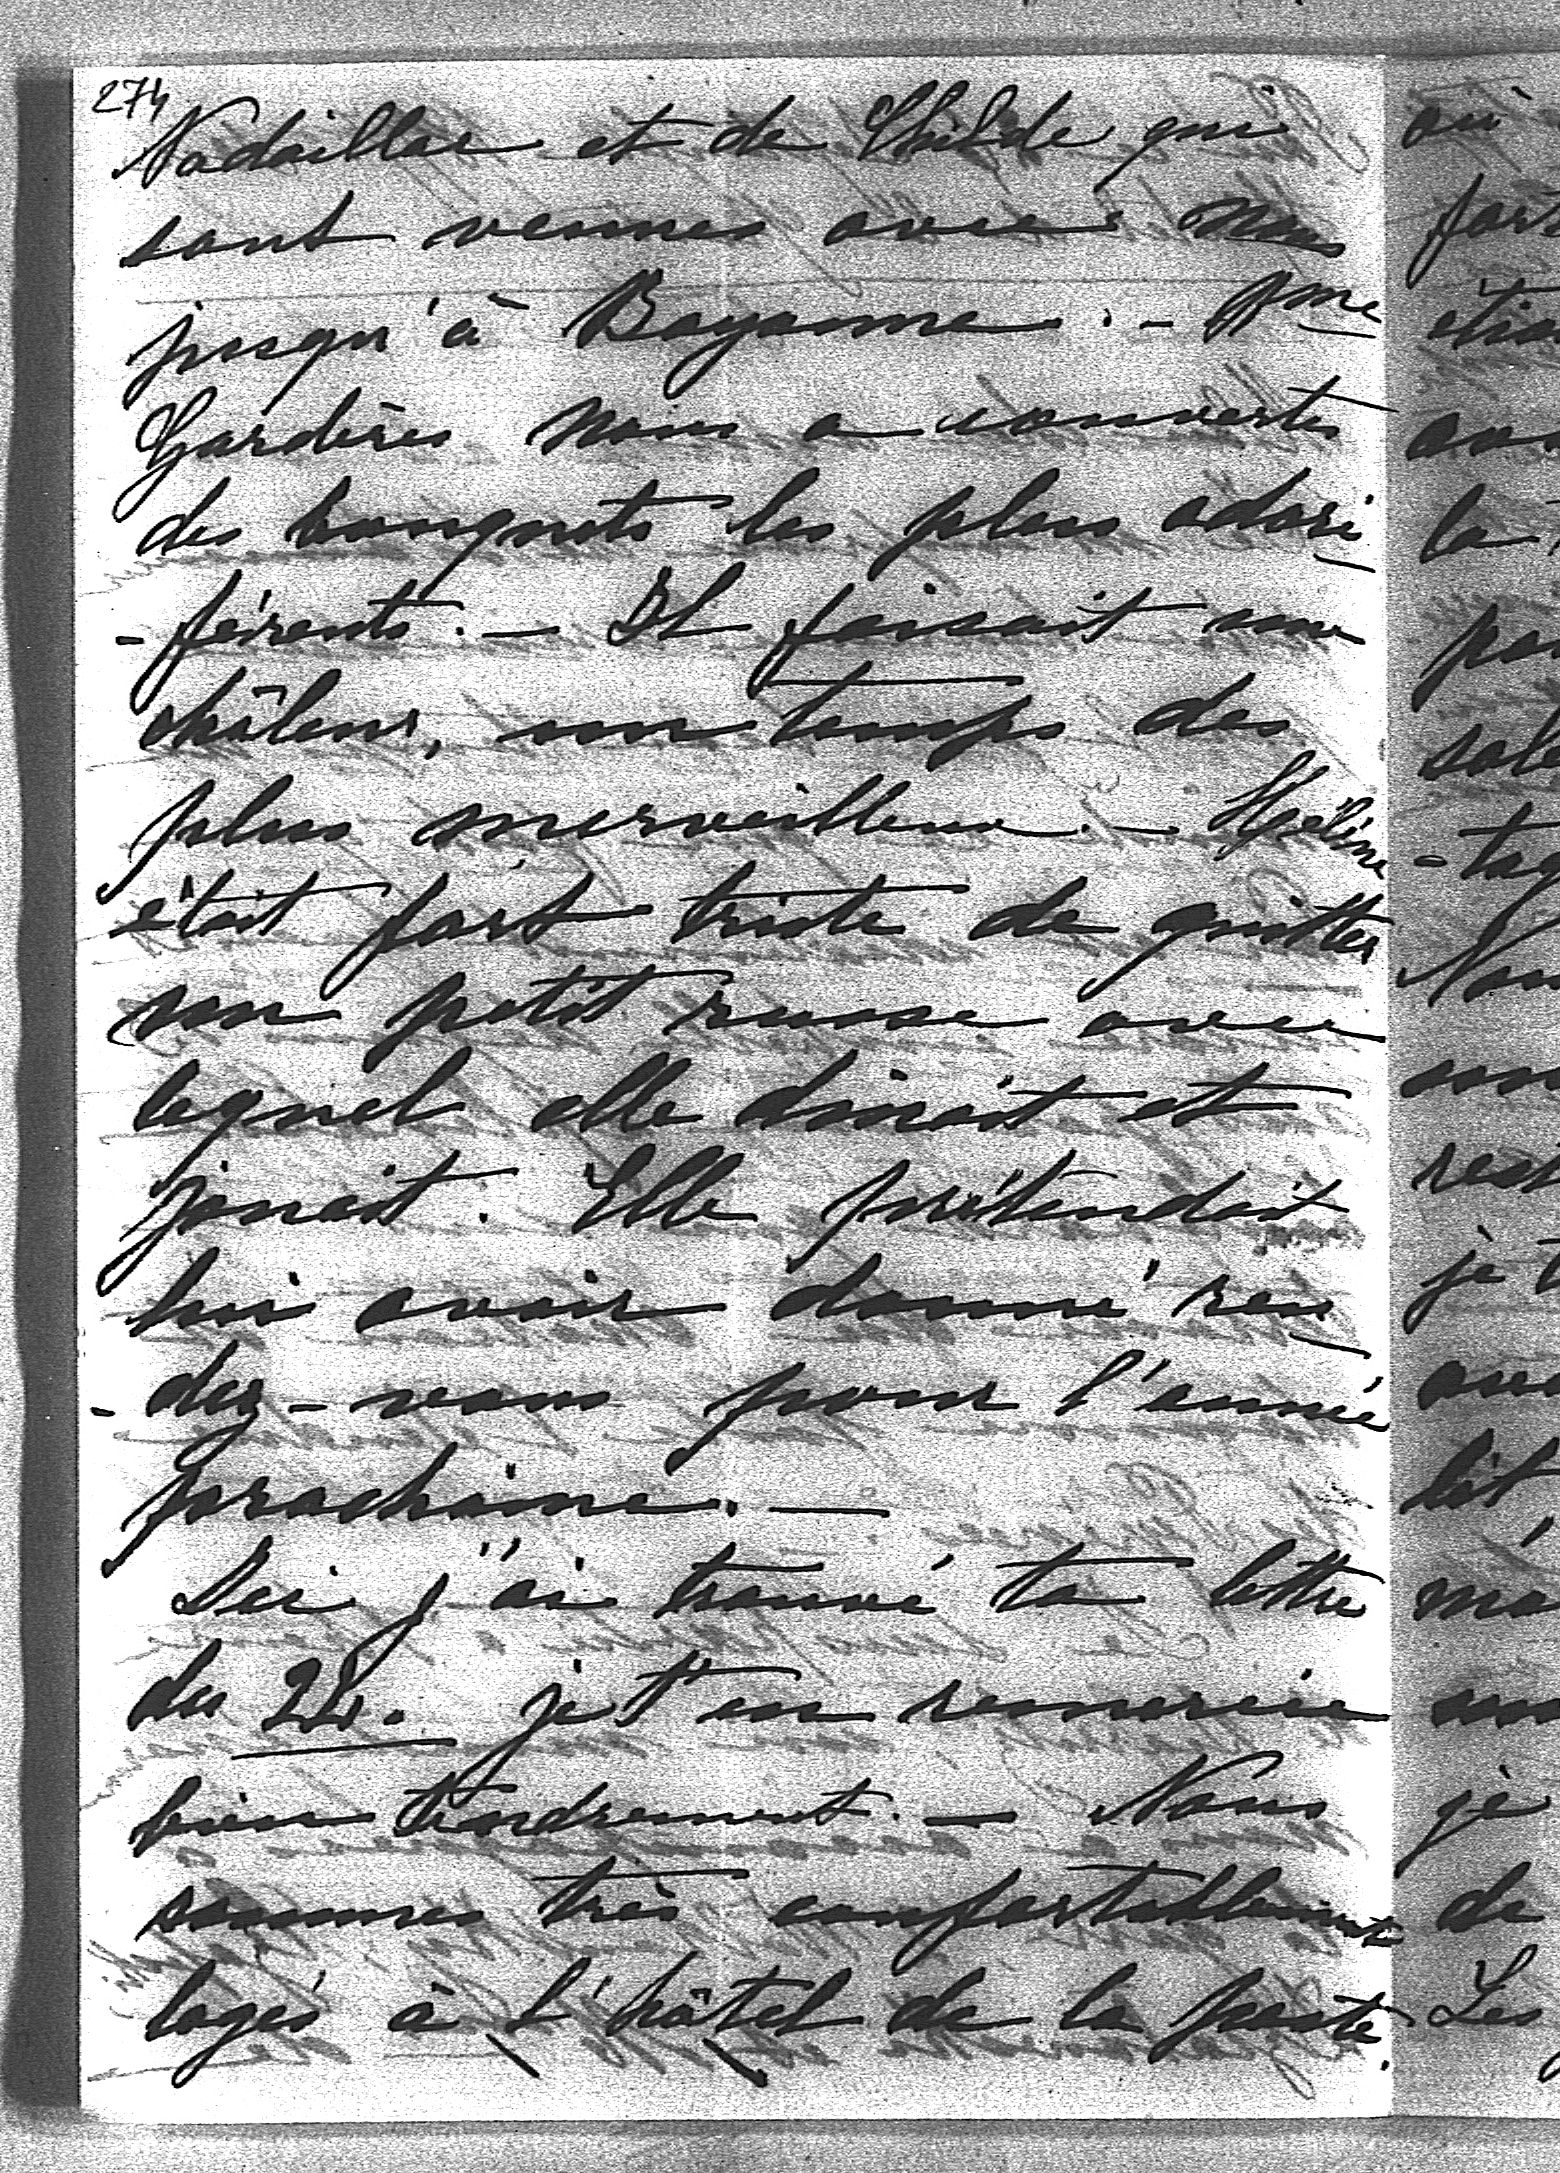 274
Nadaillac et de Childe qui
sont venues avec nous
jusqu'à Bayonne. - Mme
Gardères nous a couvertes
des bouquets les plus odori
-férents. - Il faisait une
châleur, un temps des
plus merveilleux. - Hélène
était fort triste de quitter
son petit russe avec
lequel elle dinait et
jouait. Elle prétendait
lui avoir donné ren
-dez-vous pour l'année
prochaine. -
Ici j'ai trouvé ta lettre
du 22. je t'en remercie
bien tendrement. - Nous
sommes très confortablement
logés à l'hôtel de la poste.